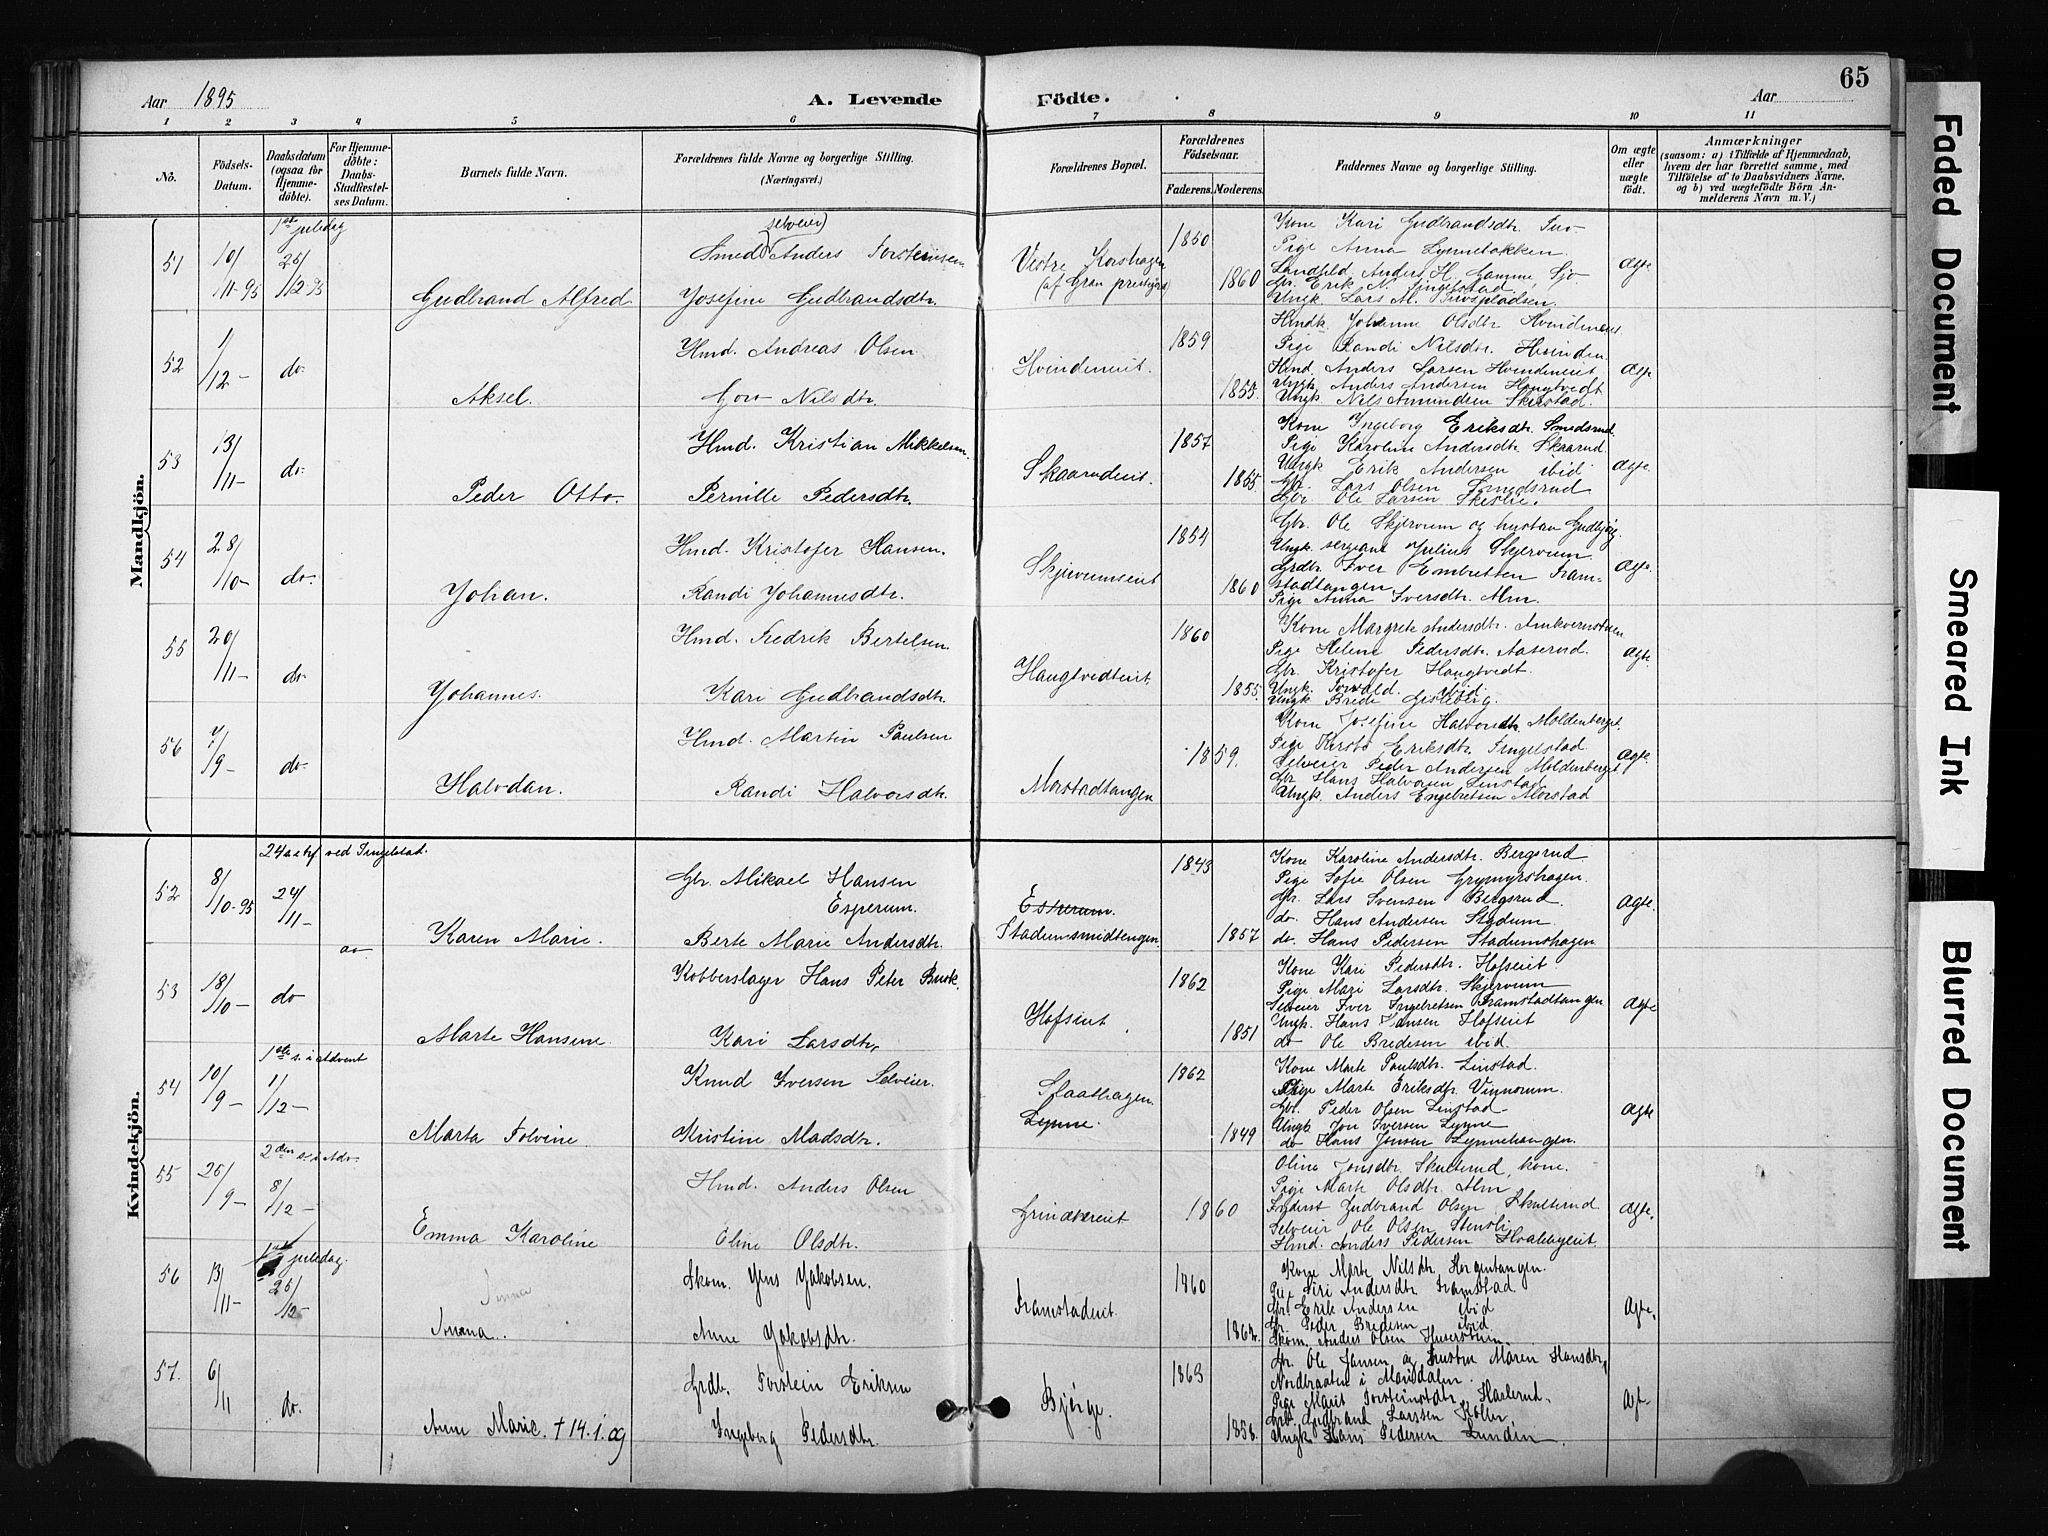 65
Aar 1895
A. Levende
Födte.
Aar
1 2 3 4 5 6 7 8 9 10 11
No.
Födsels-Datum.
Daabsdatum (ogsaa for Hjemme-döbte).
For Hjemme-döbte: Daabs-Stadfæstel-ses Datum.
Barnets fulde Navn.
Forældrenes fulde Navne og borgerlige Stilling.
(Næringsvei.)
Forældrenes Bopæl.
Forældrenes Födselsaar.
Faderens. Moderens.
Faddernes Navne og borgerlige Stilling.
Om ægte eller uægte födt.
Anmærkninger
(saasom: a) i Tilfælde af Hjemmedaab,
hvem der har forrettet samme, med
Tilföielse af to Daabsvidners Navne,
og b) ved uægtefödte Börn An-
melderens Navn m. V.)
Mandkjön.
51 10/11-95 1ste juledag 25/12 95
Gudbrand Alfred
Smed selveier Anders Torsteinsen
Josefine Gudbrandsdtr.
Vestre Korshagen
(af Gran prestegj)
1850 1860
Kone Kari Gudbrandsdtr.
Pige Anna Lynnebakken
Landhdl. Anders H. Gamme
Gbr. Erik N. Tingelstad
Ungk Lars M.
Ægte
52 1/12- do-
Aksel.
Hmd. Andreas Olsen
Goro Nilsdtr.
Hvindeneiet.
1859 1855.
Hmdk. Johanne Olsdtr Hvindeneiet
Pige Randi Nilsdtr. Hvinden
Hmd. Anders Larsen Hvindeneiet
Ungk. Anders Andersen Haugtvedt
Ungk. Nils Amundsen Skirstad.
Ægte
53 13/11- do-
Peder Otto.
Hmd. Kristian Mikkelsen.
Pernille Pedersdtr.
Skaarudeiet.
1857 1855.
Kone Ingeborg Eriksdtr Smedsrud
Pige Karoline Andersdtr. Skaarud
Ungk Erik Andersen ibid
Gbr. Lars Olsen Smedsrud
Gbr. Ole Larsen
Ægte.
54 28/10- do-
Johan.
Hmd. Kristofer Hansen.
Randi Johannesdtr.
Skjervumseiet
1854 1860
Gbr. Ole Skjervum og hustru Gudbjør
Ungk. sergeant Julius Skjervum
Grdbr Iver Embretsen Fram-
stadtangen
Pige Anna Iversdtr. Alm.
Ægte.
55 20/11- do-
Johannes.
Hmd. Fredrik Bertelsen.
Kari Gudbrandsdtr.
Haugtvedteiet.
1860 1855.
Kone Margrete Andersdtr.
Pige Helene Pedersdtr. Aaserud.
Gbr. Kristofer Haugtvedt.
Ungk. Torvald ibid.
Ungk Brede Gisleberg.
Ægte.
56 7/9- do-
Halvdan.
Hmd. Martin Paulsen
Randi Halvorsdtr.
Morstadtangen
1859.
Kone Josefine Halvorsdtr Moldenberget
Pige Kersti Eriksdtr. Tingelstad
Selveier Peder Andersen Moldenberget
Gbr Hans Halvorsen Linstad
Ungk. Anders Engebretsen Morstad
Ægte.
Kvindekjön.
24 s. e. trf. ved Tingelstad.
52 8/10-95 24/11-
Karen Marie.
Gbr. Mikael Hansen
Esperum.
Berte Marie Andersdtr.
Esperum.
Stadumsmidtengen
1843 1857
Kone Karoline Andersdtr. Bergsrud
Pige Sofie Olsen Grymyrshagen.
Gbr. Lars Svensen Bergsrud
do. Hans Andersen Stadum.
do. Hans Pedersen Stadumshagen
Ægte.
53 18/10- do
Marte Hansine
Kobberslager Hans Peter Busk.
Kari Larsdtr.
Hofseiet.
1862 1851
Kone Kari Pedersdtr. Hofseiet
Pige Mari Larsdtr. Skjervum
Selveier Iver Ingebretsen Framstadtangen
Ungk. Hans Hansen Hofseiet
do Ole Bredesen ibid.
Ægte
1ste s. i Advent
54 10/9- 1/12-
Marta Tolvine
Knud Iversen Selveier.
Kristine Madsdtr.
Staathagen
Lynne.
1862 1849
Kone Marte Paulsdtr. Linstad.
Pige Marte Eriksdtr. Vinnorum.
Gbr. Peder Olsen Linstad
Ungk Jon Iversen Lynne
do Hans Jonsen Lynnehaugen.
Ægte
2den s. i Adv.
55 25/9- 8/12-
Emma Karoline
Hmd. Anders Olsen
Eline Olsdtr.
Grindakereiet
1860
Oline Jonsdtr. Skutterud, kone.
Pige Marte Olsdtr. Alm
Gudbrand Olsen Skutterud
Selveier Ole Olsen Stensli
Hmd. Anders Pedersen
Ægte.
1ste juledag
56 13/11- 25/12-
Inna
Innana.
Skom. Jens Jakobsen.
Anne Jakobsdtr.
Framstadeiet.
1860 1862.
Kone Marte Nilsdtr Horgentangen.
Pige Siri Andersdtr Framstad
Gbr. Erik Andersen ibid
Gbr. Peder Bredesen ibid
Skom. Anders Olsen
Ægte.
57. 6/11 do.
Anne Marie. † 14.1.09
Grdb. Torstein Eriksen
Ingeborg Pedersdtr.
Bjørge.
1863 1858.
Gbr. Ole Jansen og hustru Maren Hansdtr.
Nordbraaten i Maridalen.
Pige Marit Torsteinsdtr. Harlerud.
Gbr. Gudbrand Larssen Koller
Ungk Hans Pedersen Lunden.
Ægte
Faded Document
Smeared Ink
Blurred Document